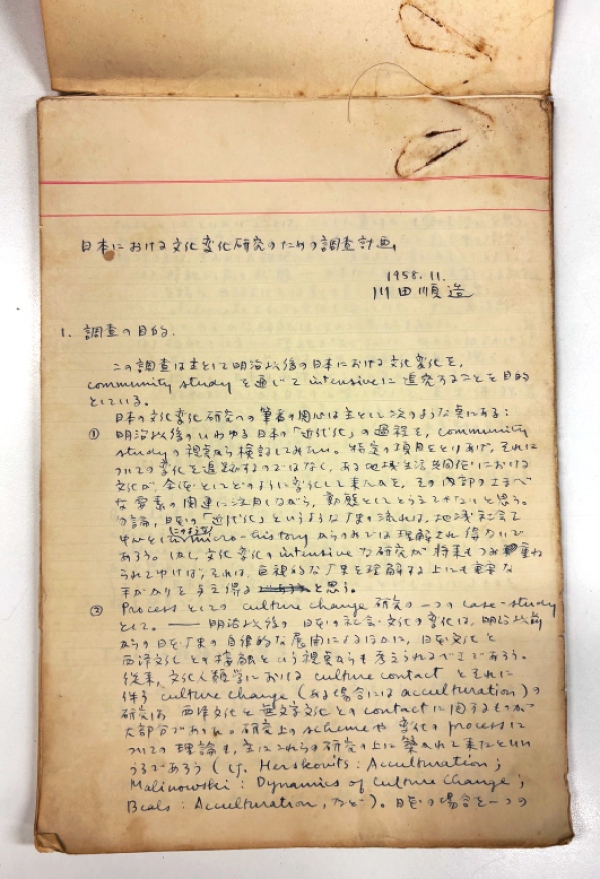 日本における文化変化研究のための調査計画
1958. 11.
川田順造
1. 調査の目的.
この調査は主として明治以後の日本における文化変化を,
community study を通じて intensive に追究することを目的
としている。
日本の文化変化研究への筆者の関心は主として次のような点にある：
① 明治以後のいわゆる日本の「近代化」の過程を, community
studyの視点から検討してみたい。特定の項目をとりあげ, それに
ついての変化を追跡するのではなく, ある地域生活共同体における
文化が, 全体としてどのように変化して来たかを, その内部のさまざま
な要素の関連に注目しながら, 動態としてとらえてみたいと思う。
勿論, 日本の「近代化」というような歴史の流れは, 地域社会を
中心としたこのような micro-history からのみでは理解され得ないで
あろう。しかし文化変化の intensive な研究が将来もつみ重ね
られてゆけば, それは, 巨視的な歴史を理解する上にも重要な
手がかりを与え得ると思う。
② Process としての culture change 研究の一つの case-study
として。—— 明治以後の日本の社会・文化の変化は, 明治以前
からの日本歴史の自律的な展開によるほかに, 日本文化と
西洋文化との接触という視点からも考えられるべきであろう。
従来, 文化人類学における culture contact とそれに
伴う culture change (ある場合には acculturation) の
研究は, 西洋文化と無文字文化との contact に関するものが
大部分であった。研究上の scheme や変化の process に
ついての理論も, 主にこれらの研究の上に築かれて来たといい
うるであろう (cf. Herskovits : Acculturation ;
Malinowski : Dynamics of Culture Change ;
Beals : Acculturation, など)。日本の場合を一つの